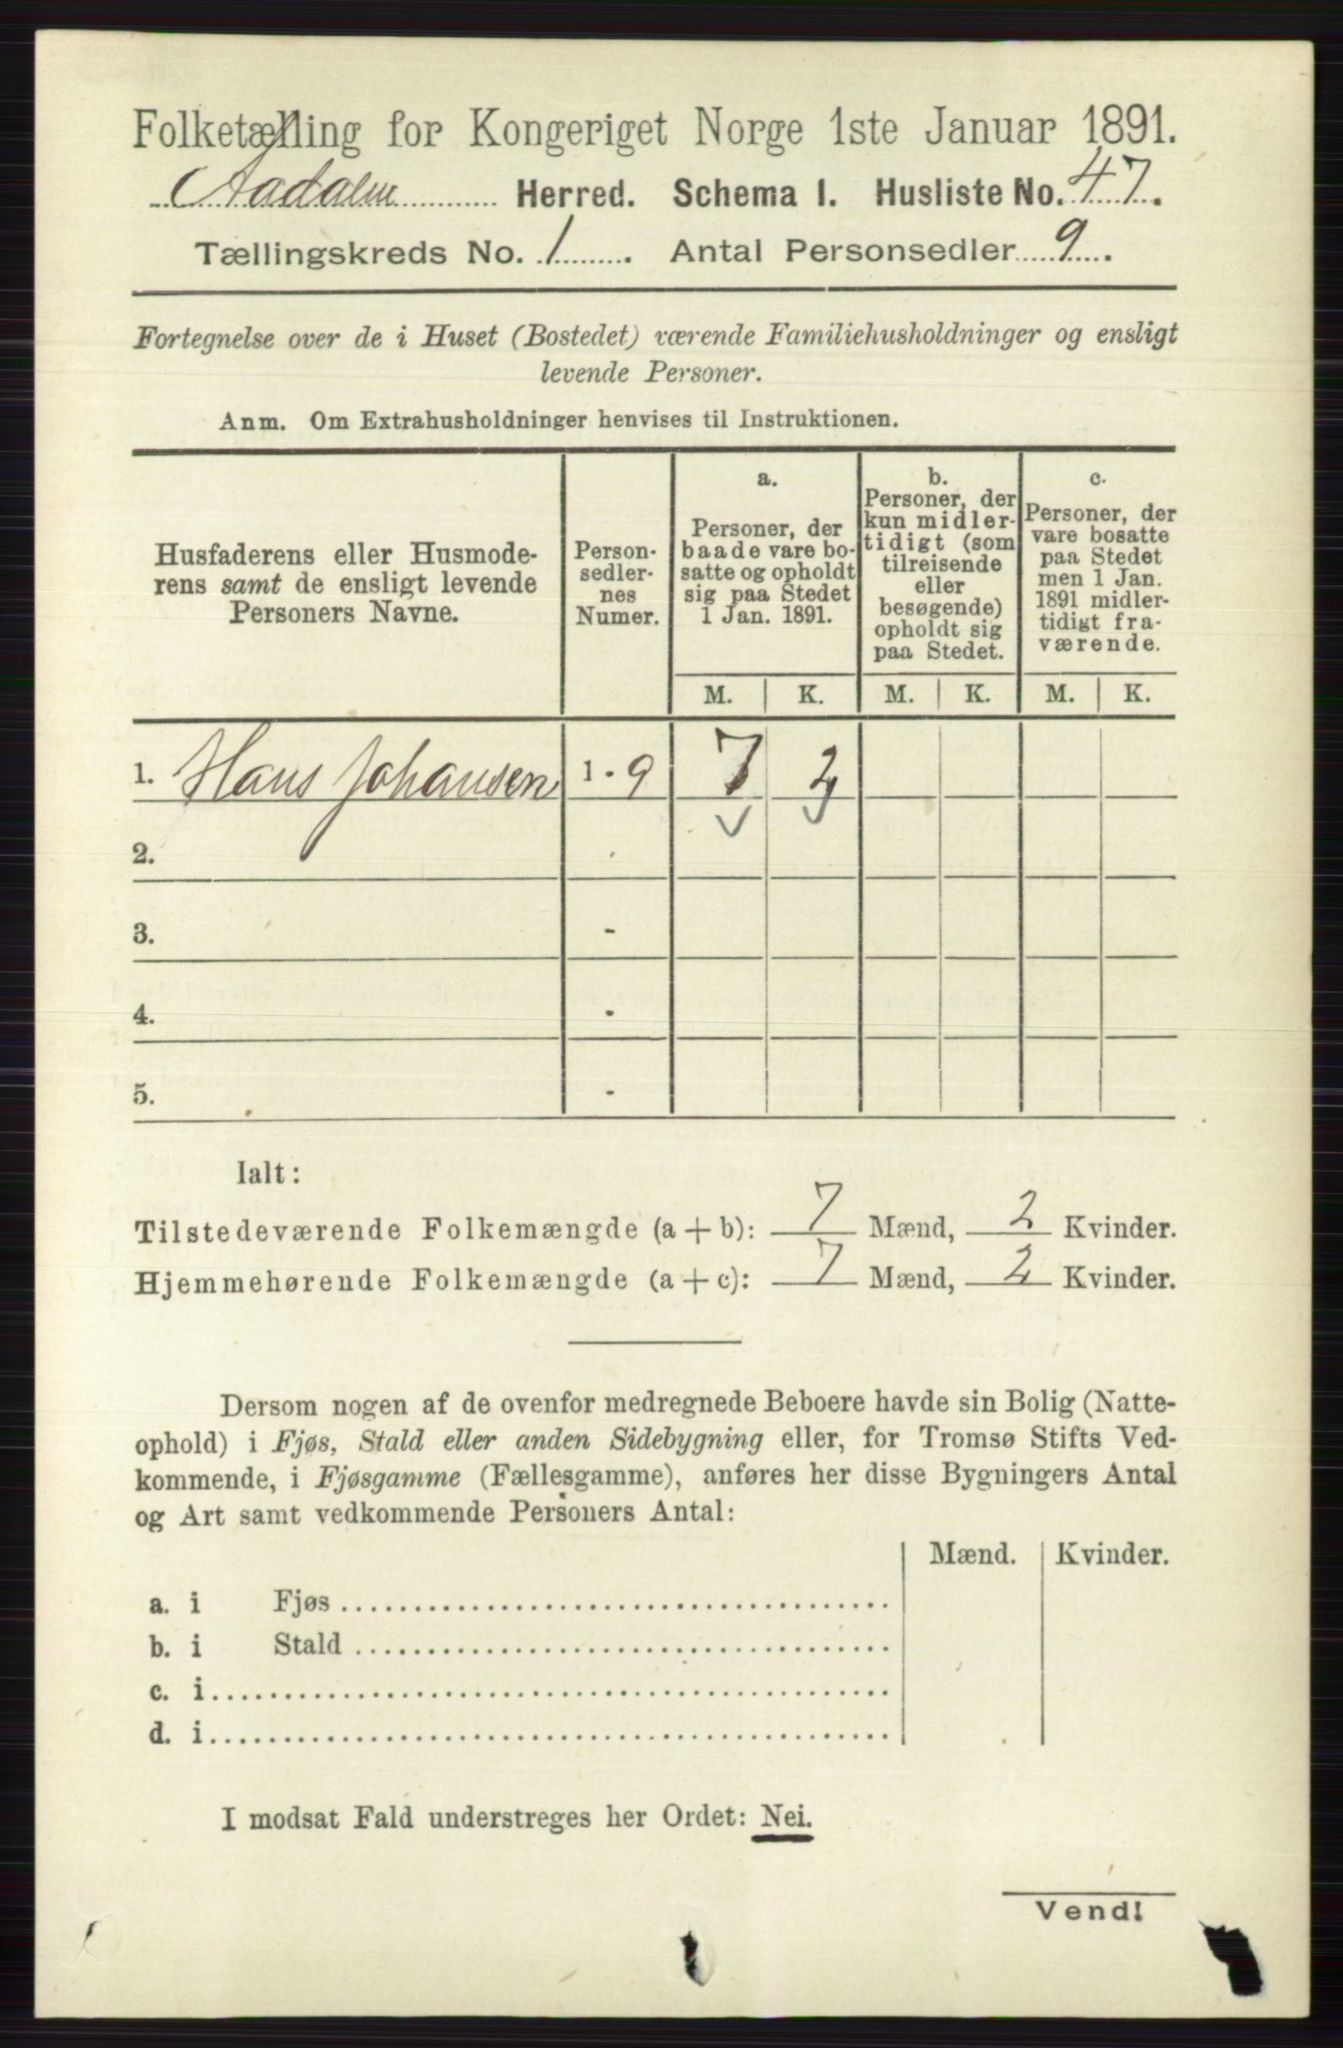 Folketælling for Kongeriget Norge 1ste Januar 1891.
Aadalen Herred. Schema 1. Husliste No. 47.
Tællingskreds No. 1. Antal Personsedler 9.
Fortegnelse over de i Huset (Bostedet) værende Familiehusholdninger og ensligt
levende Personer.
Anm. Om Extrahusholdninger henvises til Instruktionen.
Husfaderens eller Husmode-
rens samt de ensligt levende
Personers Navne.
Person-
sedler-
nes
Numer.
a.
Personer, der
baade vare bo-
satte og opholdt
sig paa Stedet
1 Jan. 1891.
b.
Personer, der
kun midler-
tidigt (som
tilreisende
eller
besøgende)
opholdt sig
paa Stedet.
c.
Personer, der
vare bosatte
paa Stedet
men 1 Jan.
1891 midler-
tidigt fra-
værende.
M. K. M. K. M. K.
1. Hans Johansen 1 - 9 7 2
2.
3. -
4. -
5. -
Ialt:
Tilstedeværende Folkemængde (a + b): 7 Mænd, 2 Kvinder.
Hjemmehørende Folkemængde (a + c): 7 Mænd, 2 Kvinder.
Dersom nogen af de ovenfor medregnede Beboere havde sin Bolig (Natte-
ophold) i Fjøs, Stald eller anden Sidebygning eller, for Tromsø Stifts Ved-
kommende, i Fjøsgamme (Fællesgamme), anføres her disse Bygningers Antal
og Art samt vedkommende Personers Antal:
Mænd. Kvinder.
a. i Fjøs
b. i Stald
c. i
d. i
I modsat Fald understreges her Ordet: Nei.
Vend!